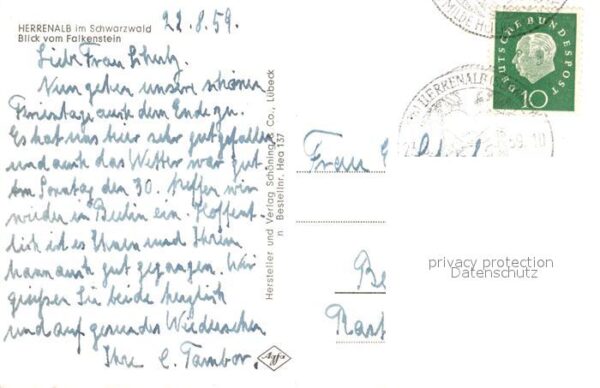 22.8.59.
HERRENALB im Schwarzwald
Blick vom Falkenstein
Liebe Frau Schulz,
Nun gehen unsere schönen
Ferientage auch dem Ende zu.
Es hat uns hier sehr gut gefallen
und auch das Wetter war gut.
Am Sonntag den 30. treffen wir
wieder in Berlin ein. Hoffent-
lich ist es Ihnen und Ihrem
Mann auch gut gegangen. Wir
grüßen Sie beide herzlich
und auf gesundes Wiedersehen
Ihre E. Tambor.
Hersteller und Verlag Schöning & Co., Lübeck
Bestellnr. Hea 137
Agfa
DEUTSCHE BUNDESPOST
10
HERRENALB
Frau
Be
privacy protection
Datenschutz